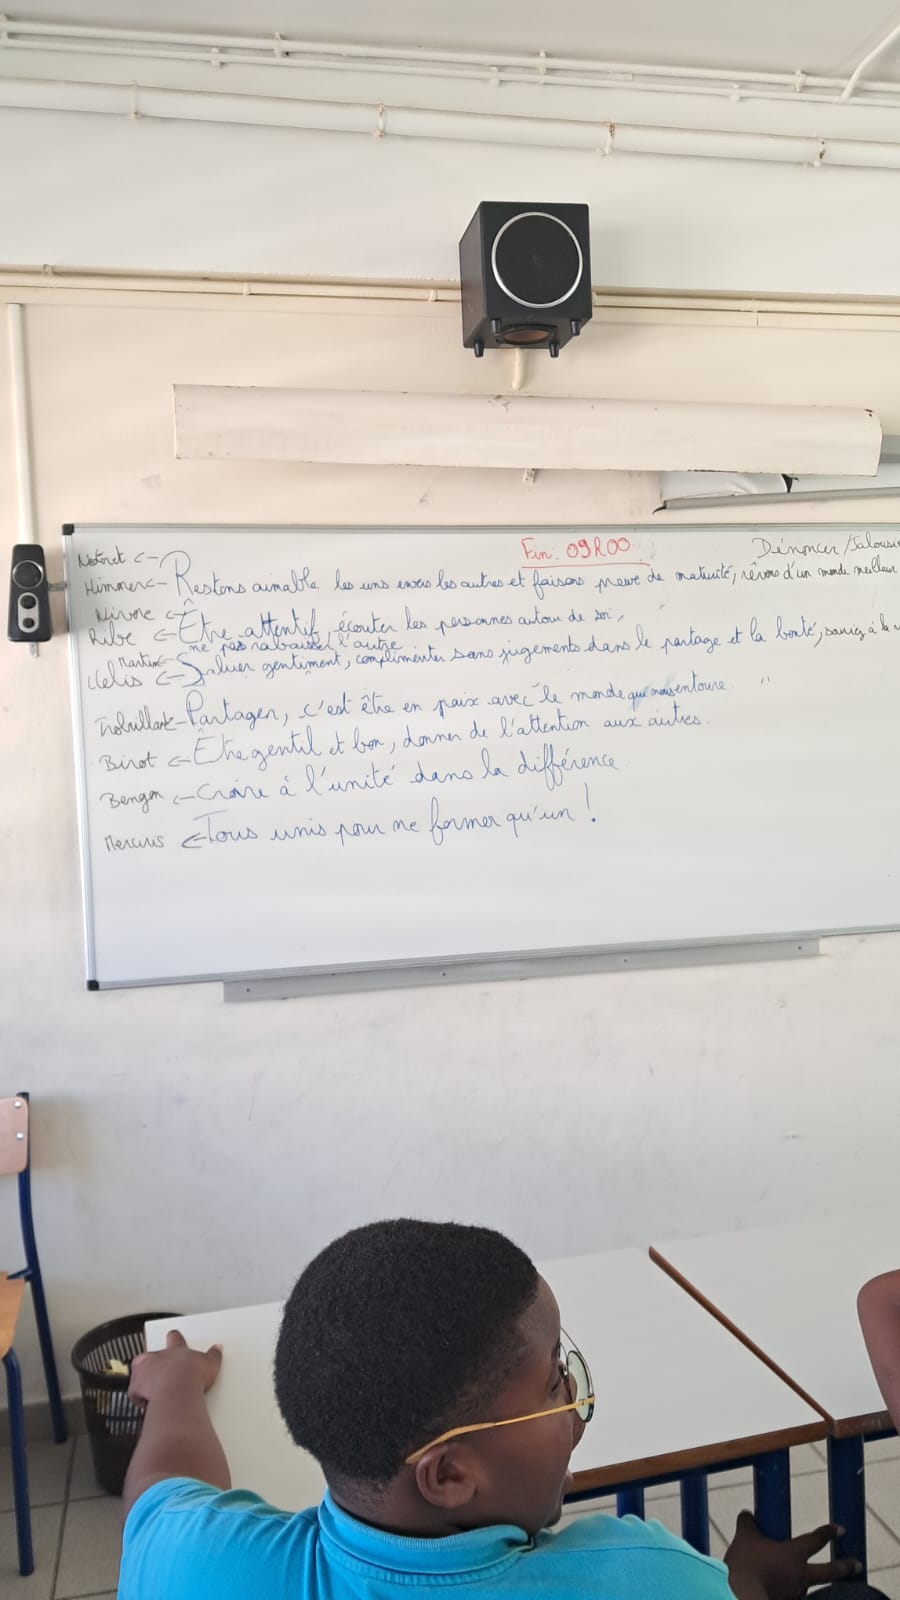 Fin: 09h00 Dénoncer/Jalousie
Himmer <- Restons aimable les uns envers les autres et faisons preuve de maturité, rêvons d'un monde meilleur
Ribe <- Être attentif, écouter les personnes autour de soi,
ne pas rabaisser l'autre
Martin <- Saluer gentiment, complimenter sans jugements dans le partage et la bonté, souriez à la
Partager, c'est être en paix avec le monde qui nous entoure.
Birot <- Être gentil et bon, donner de l'attention aux autres.
<- Croire à l'unité dans la différence
<- Tous unis pour ne former qu'un !